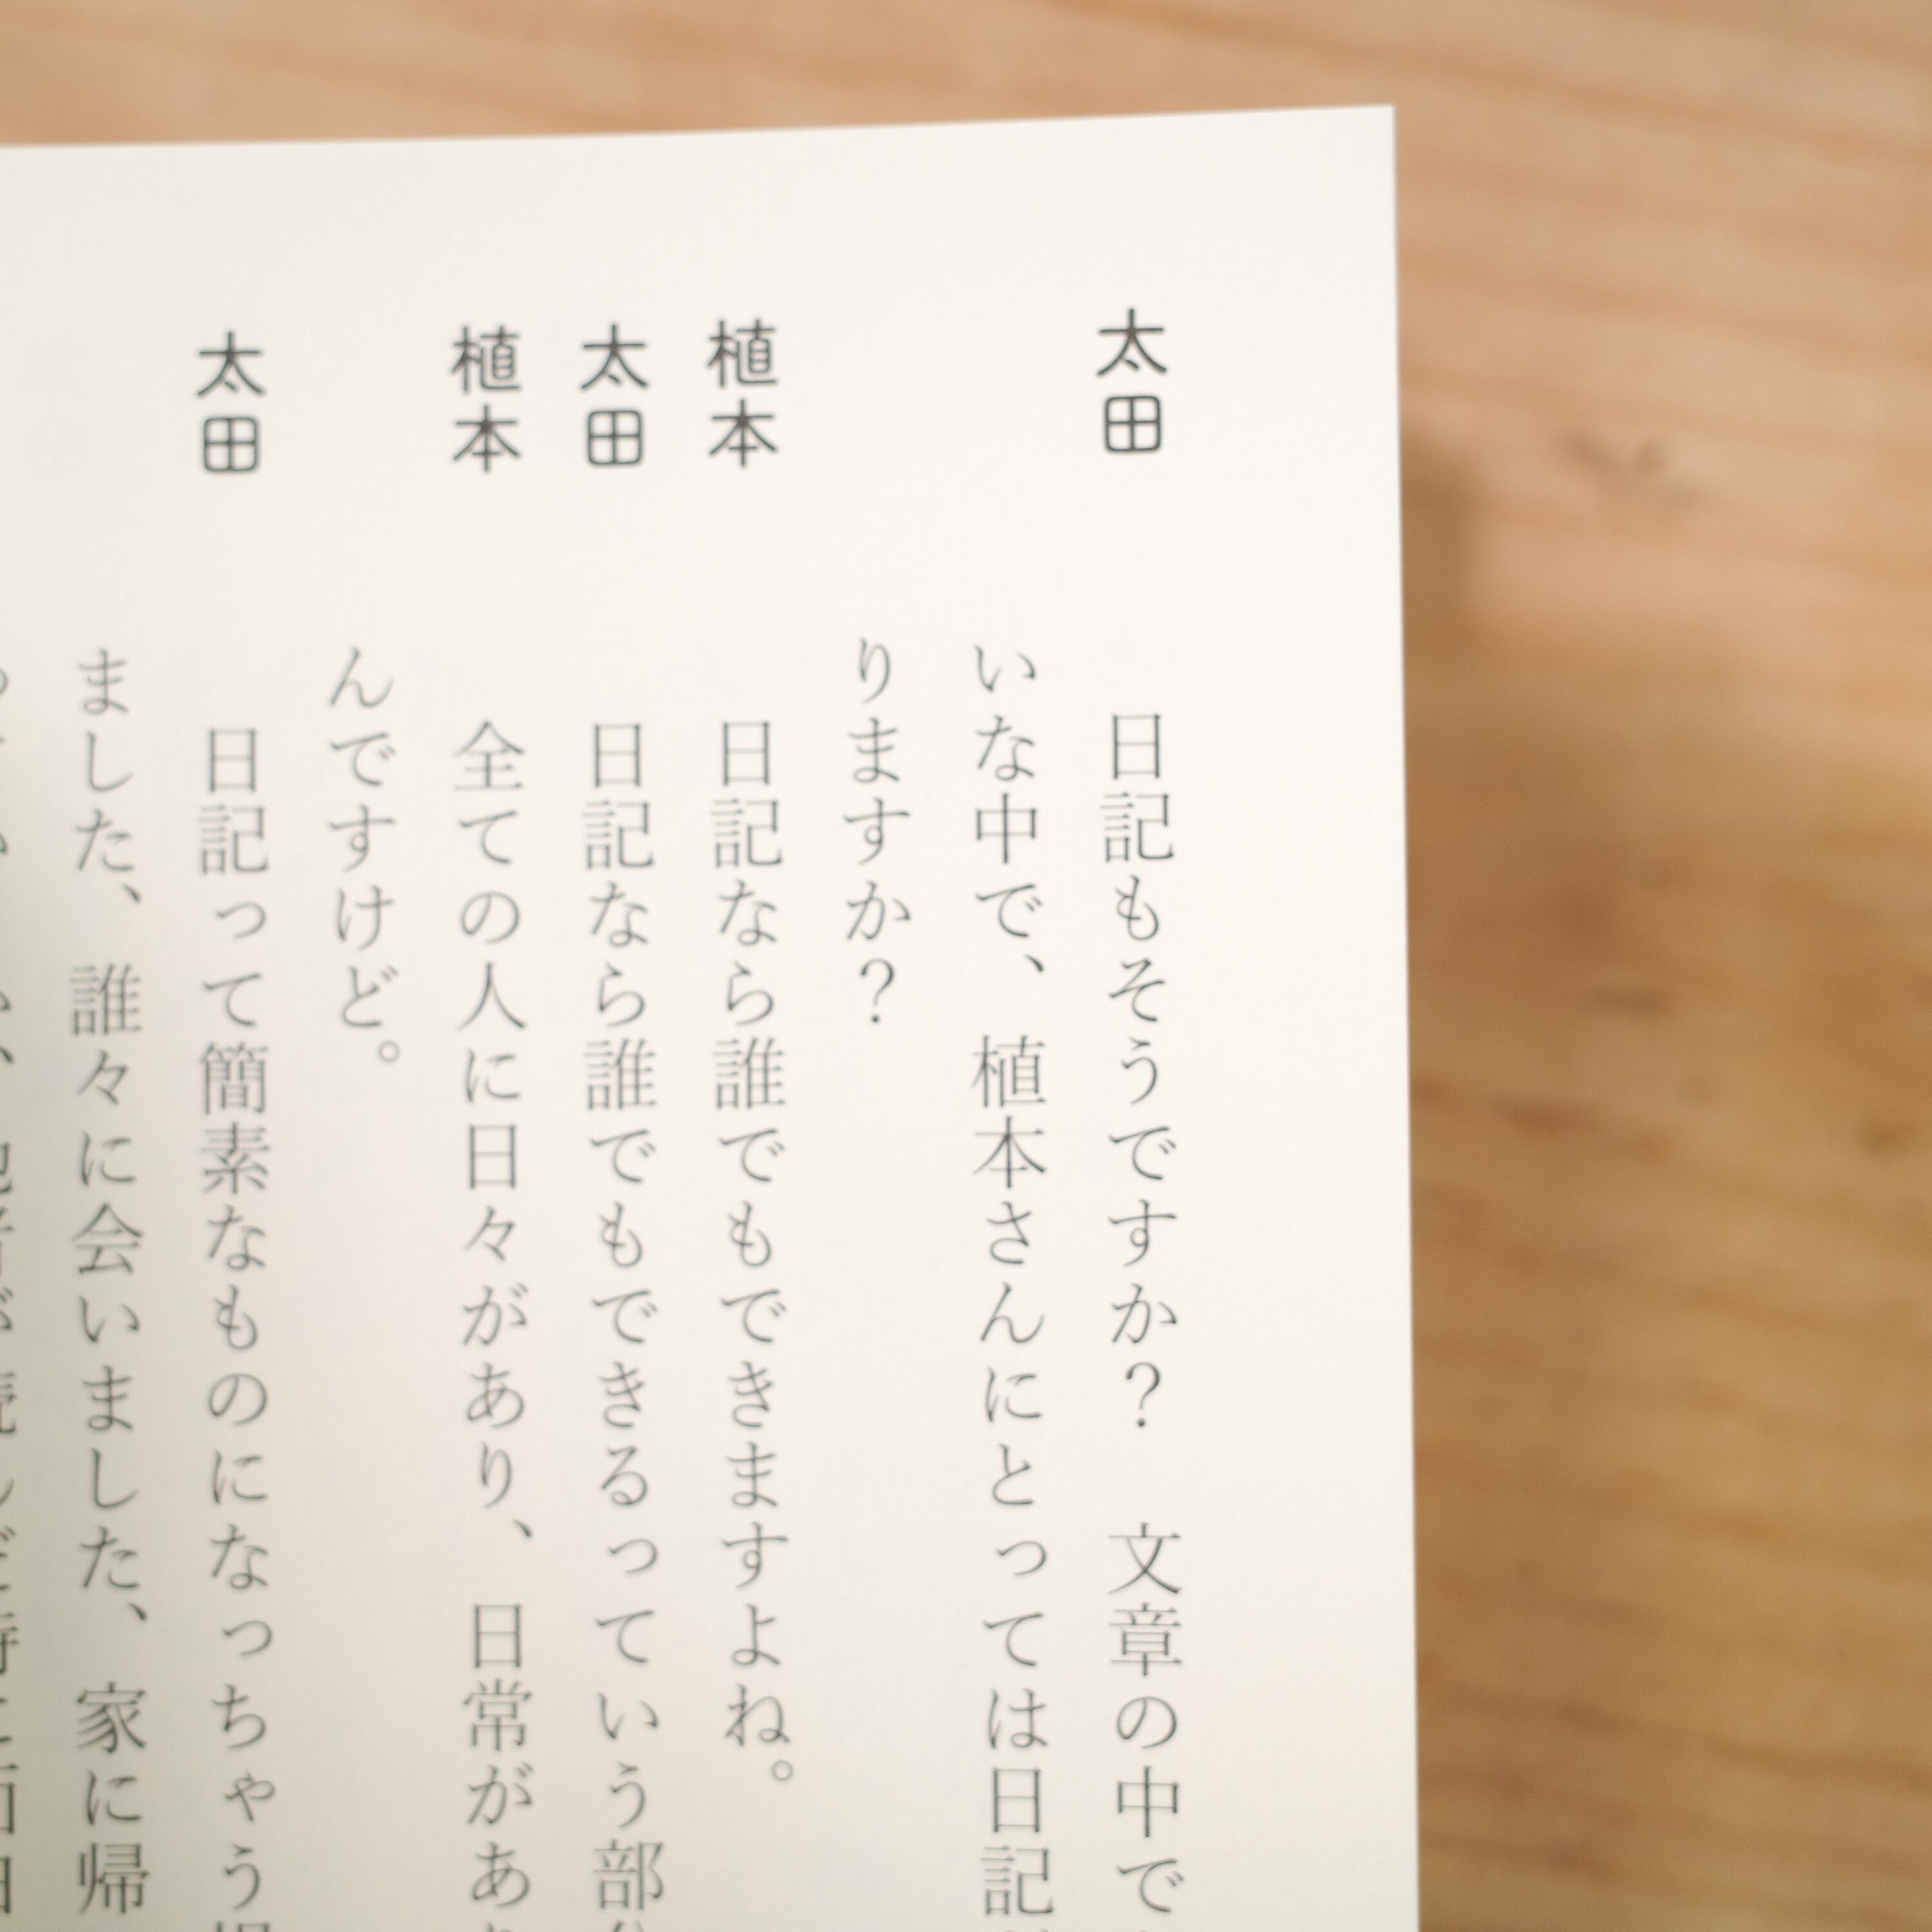 太田　日記もそうですか？　文章の中で
いな中で、植本さんにとっては日記
りますか？
植本　日記なら誰でもできますよね。
太田　日記なら誰でもできるっていう部
植本　全ての人に日々があり、日常があ
んですけど。
太田　日記って簡素なものになっちゃう
ました、誰々に会いました、家に帰